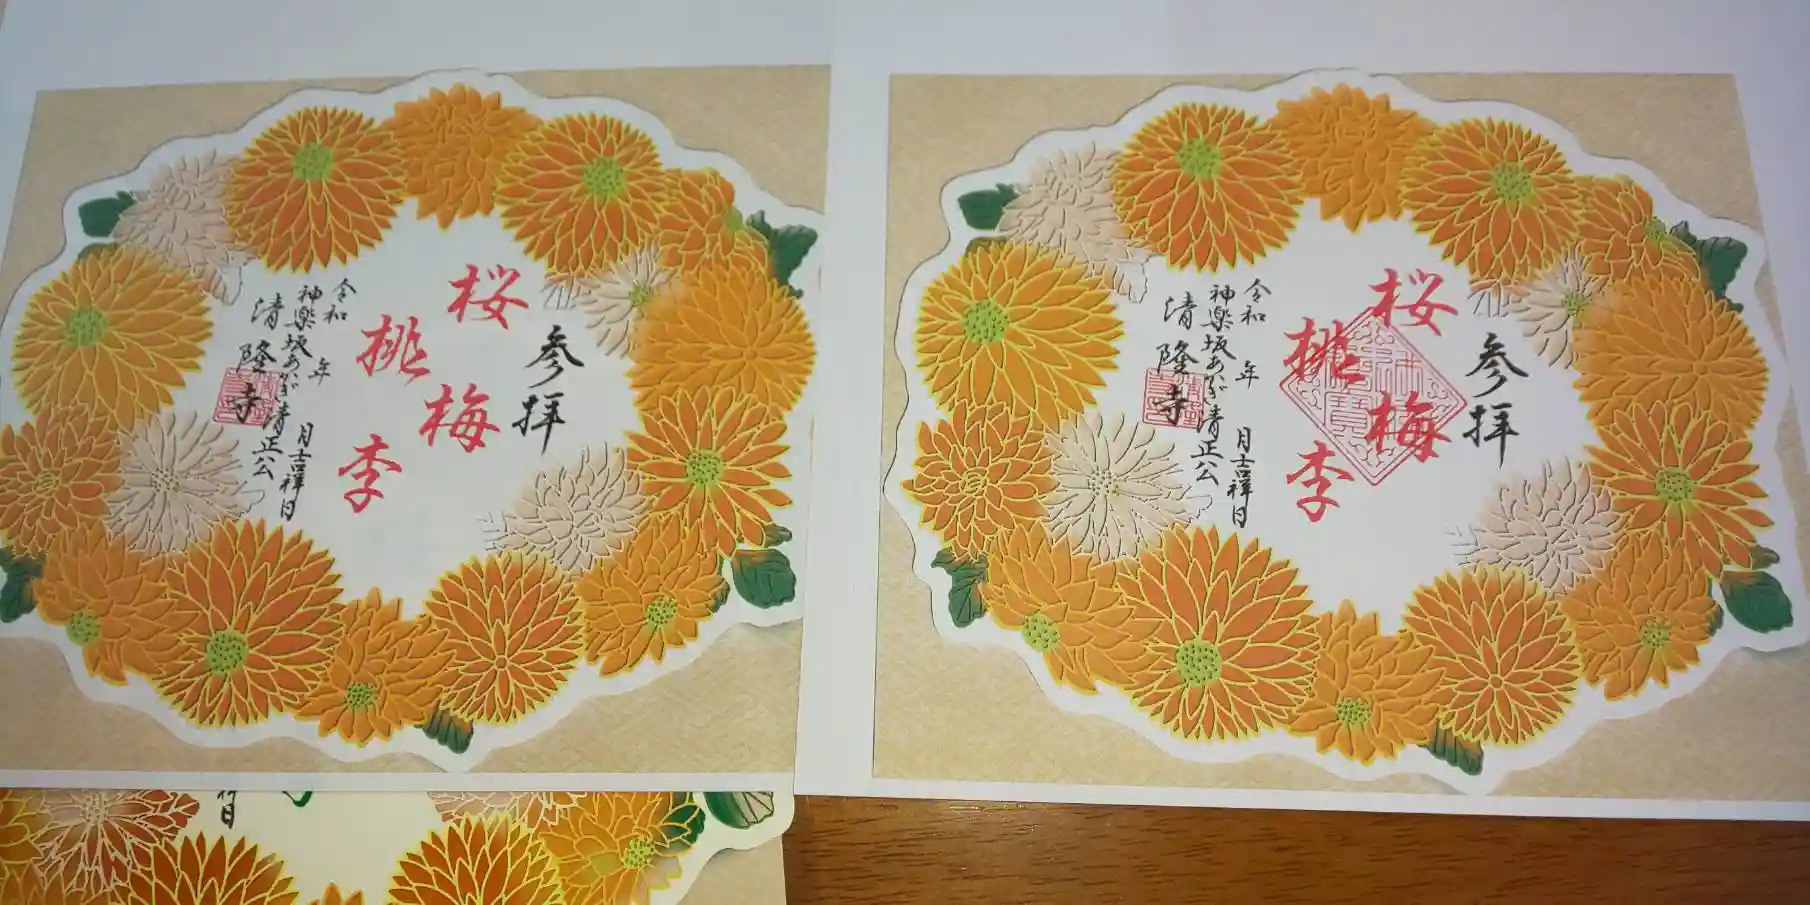 参拝
桜梅
桃李
令和 年 月吉祥日
神楽坂あかぎ清正公
清隆寺
参拝
桜梅
桃李
令和 年 月吉祥日
神楽坂あかぎ清正公
清隆寺